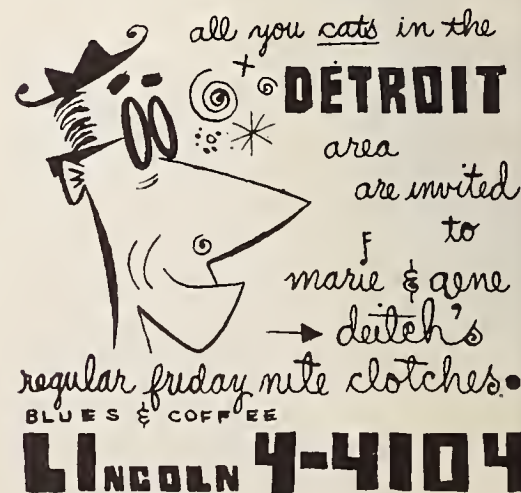 all you cats in the
DETROIT
area
are invited
to
marie & gene
deitch's
regular friday nite clotches.
BLUES & COFFEE
LINCOLN 4-4104